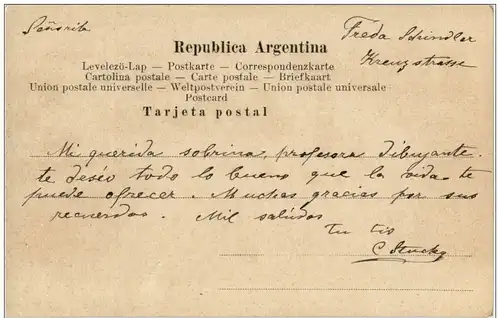 Señorita
Freda Schindler
Kreuzstrasse
Republica Argentina
Levelező-Lap — Postkarte — Correspondenzkarte
Cartolina postale — Carte postale — Briefkaart
Union postale universelle — Weltpostverein — Union postale universale
Postcard
Tarjeta postal
Mi querida sobrina, profesora dibujante.
te deseo todo lo bueno que la vida te
puede ofrecer. Muchas gracias por sus
recuerdos. Mil salúdos
tu tio
C Stucky